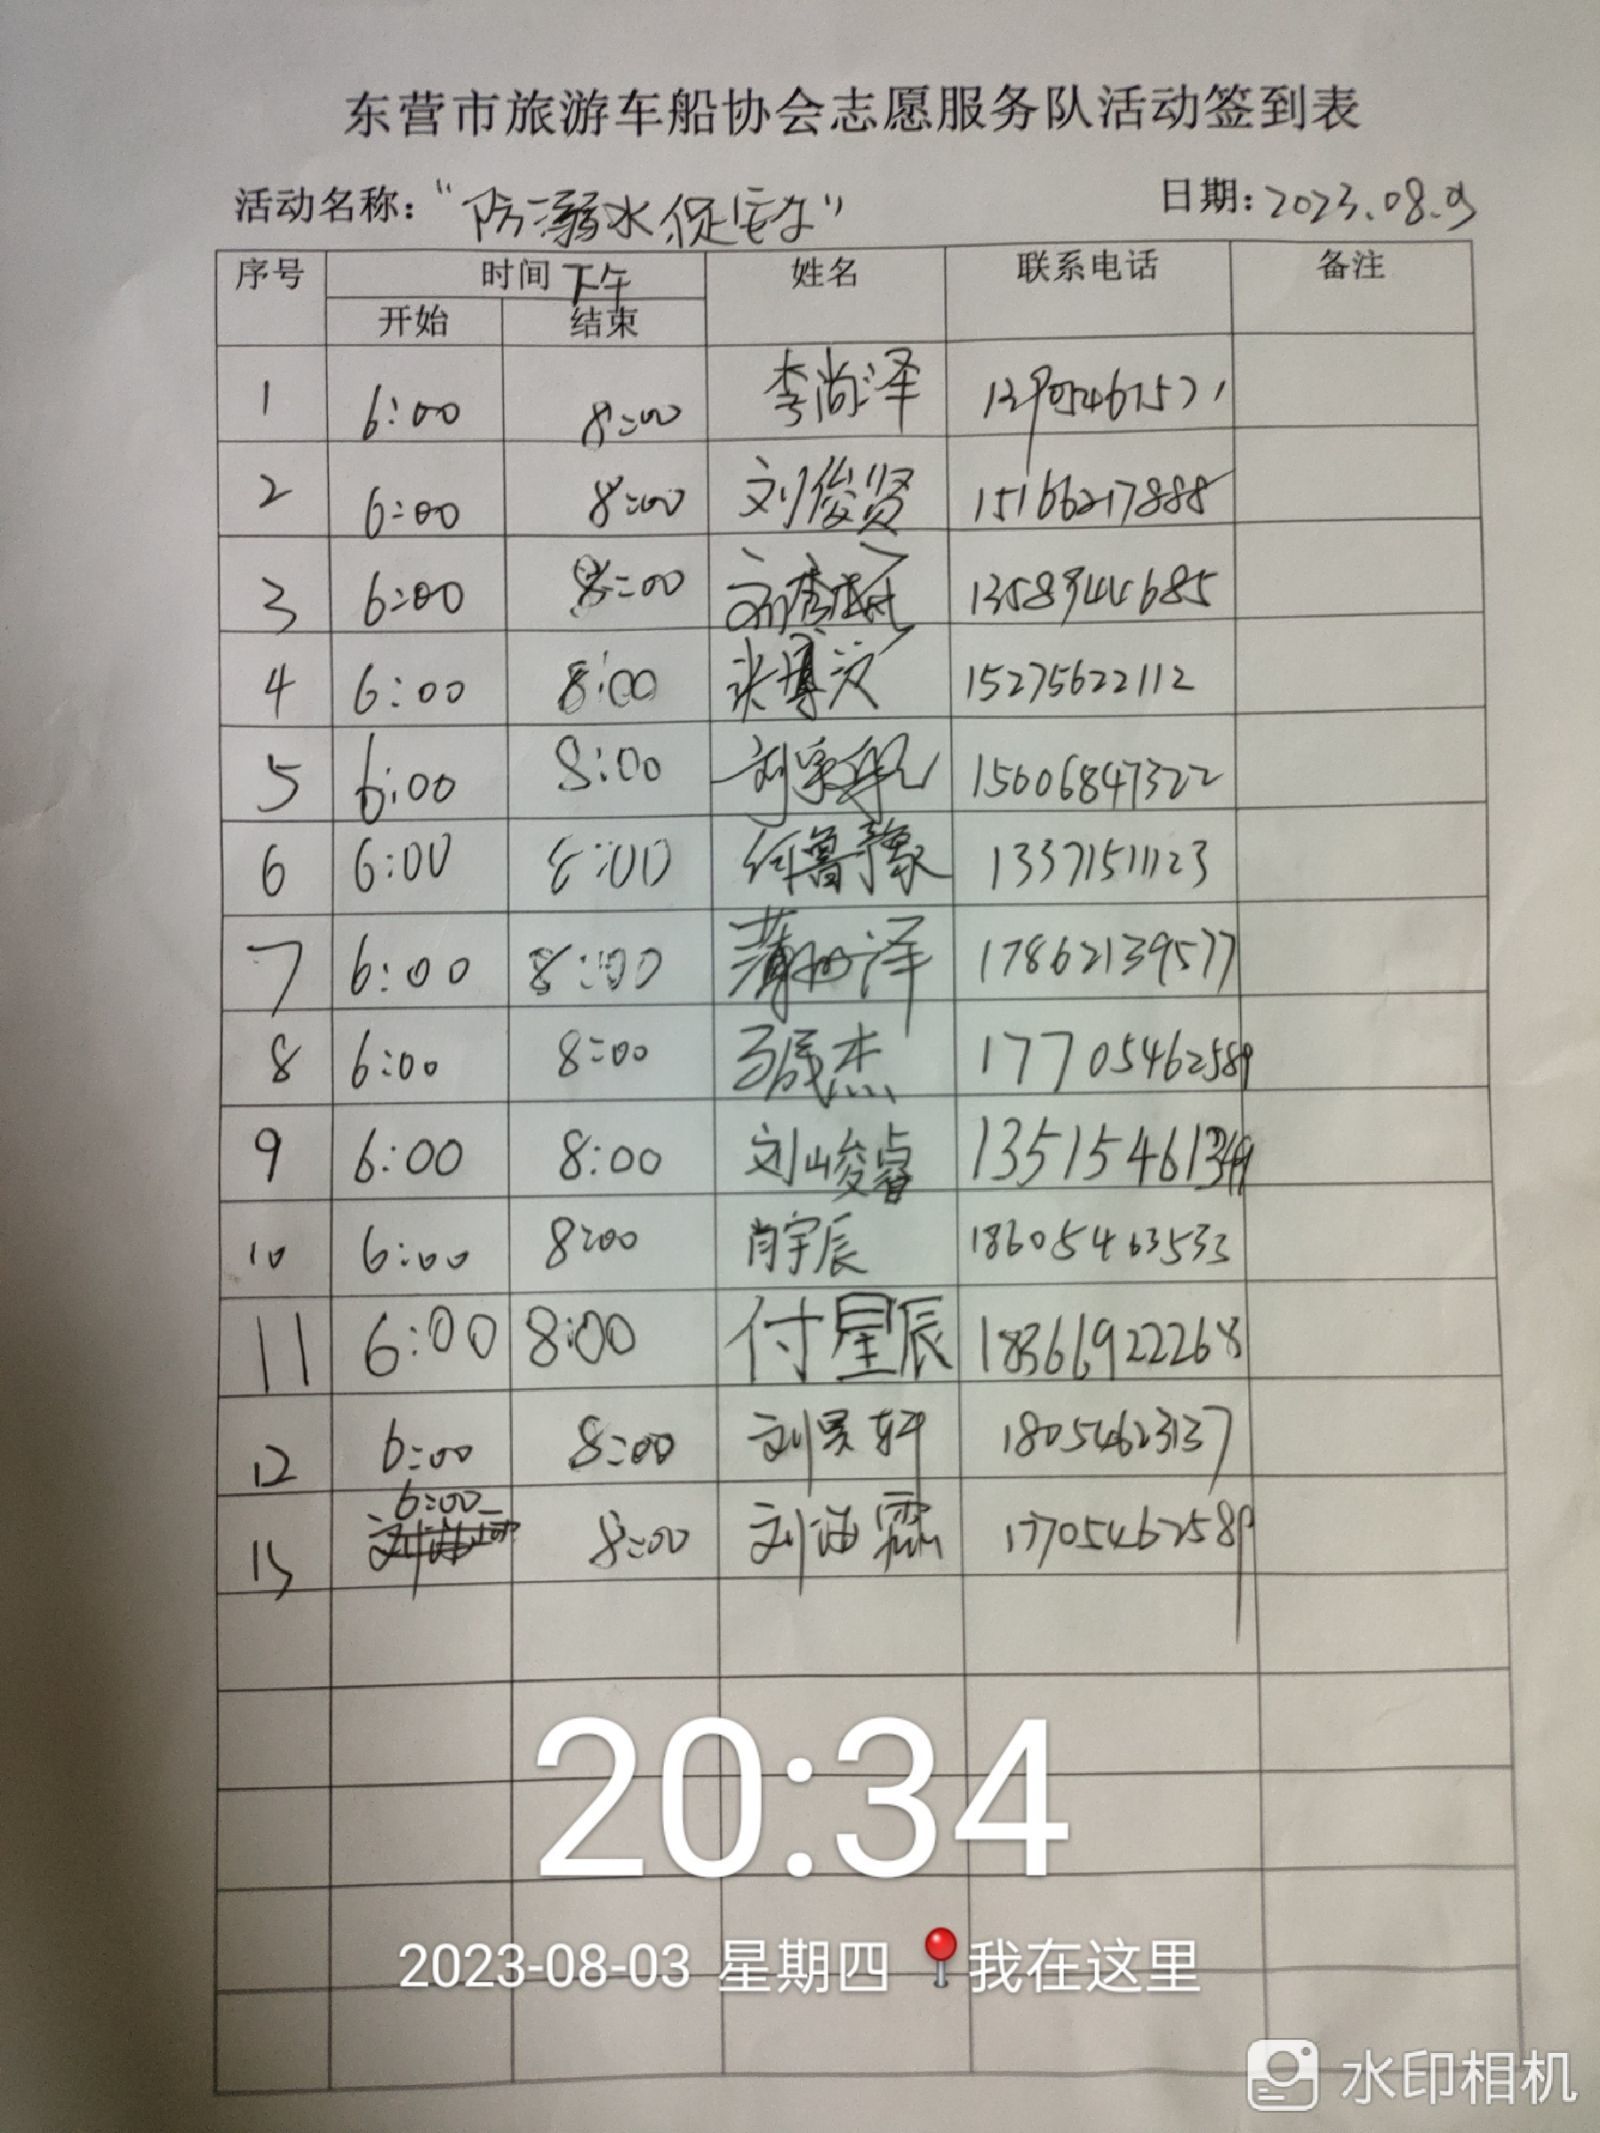 东营市旅游车船协会志愿服务队活动签到表
活动名称：“防溺水促安全” 日期：2023.08.03
序号 时间 下午 姓名 联系电话 备注
开始 结束
1 6:00 8:00 李尚泽
2 6:00 8:00 刘俊贤 15166217888
3 6:00 8:00 13589944685
4 6:00 8:00 15275622112
5 6:00 8:00 15606847322
6 6:00 8:00 何鲁豫 13371511123
7 6:00 8:00 17862139577
8 6:00 8:00 17705462589
9 6:00 8:00 刘峻睿
10 6:00 8:00 肖宇辰 18605463533
11 6:00 8:00 付星辰 18366922268
12 6:00 8:00 刘昊轩 18054623137
13 6:00 8:00 刘海霖 17705462589
20:34
2023-08-03 星期四 我在这里
水印相机